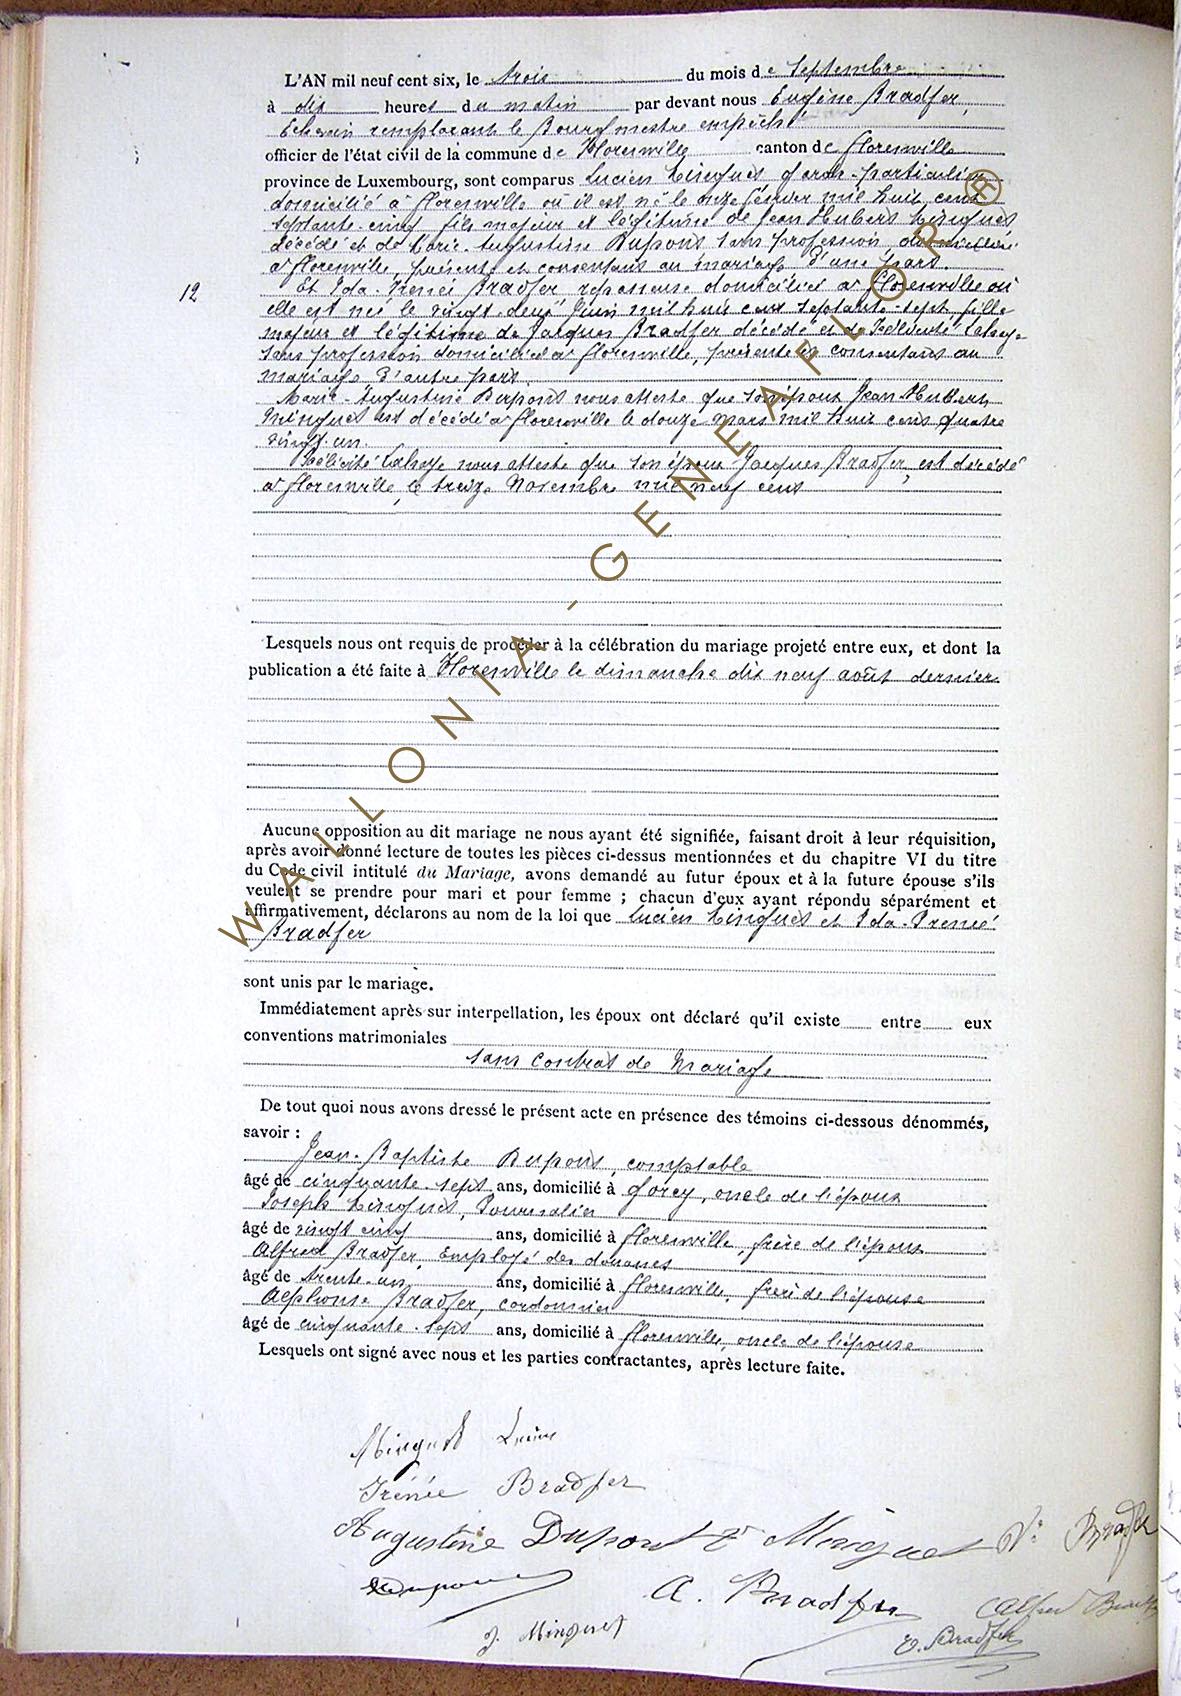 L'AN mil neuf cent six, le trois du mois de Septembre
à dix heures du matin par devant nous Eugène Bradfer,
Echevin remplaçant le Bourgmestre empêché
officier de l'état civil de la commune de Florenville canton de Florenville
province de Luxembourg, sont comparus Lucien Mingues garde-particulier
domicilié à Florenville où il est né le onze février mil huit cent
septante-cinq fils majeur et légitime de Jean Hubert Mingues,
décédé et de Marie-Augustine Dupont sans profession domiciliée
à Florenville, présente et consentant au mariage d'une part.
12
Et Ida-Irénée Bradfer repasseuse domiciliée à Florenville où
elle est née le vingt-deux Juin mil huit cent septante-sept fille
majeur et légitime de Jacques Bradfer décédé et de Félicité Lahaye
sans profession domiciliée à Florenville, présente et consentant au
mariage d'autre part.
Marie-Augustine Dupont nous atteste que son époux Jean Hubert
Mingues est décédé à Florenville le douze mars mil huit cent quatre
vingt un.
Félicité Lahaye nous atteste que son époux Jacques Bradfer, est décédé
à Florenville, le treize Novembre mil neuf cent
Lesquels nous ont requis de procéder à la célébration du mariage projeté entre eux, et dont la
publication a été faite à Florenville le dimanche dix neuf août dernier
Aucune opposition au dit mariage ne nous ayant été signifiée, faisant droit à leur réquisition,
après avoir donné lecture de toutes les pièces ci-dessus mentionnées et du chapitre VI du titre
du Code civil intitulé du Mariage, avons demandé au futur époux et à la future épouse s'ils
veulent se prendre pour mari et pour femme ; chacun d'eux ayant répondu séparément et
affirmativement, déclarons au nom de la loi que Lucien Mingues et Ida-Irenée
Bradfer
sont unis par le mariage.
Immédiatement après sur interpellation, les époux ont déclaré qu'il existe entre eux
conventions matrimoniales
sans contrat de Mariage
De tout quoi nous avons dressé le présent acte en présence des témoins ci-dessous dénommés,
savoir :
Jean-Baptiste Dupont, comptable
âgé de cinquante-sept ans, domicilié à Gorcy, oncle de l'époux
Joseph Mingues, Journalier
âgé de vingt cinq ans, domicilié à Florenville, frère de l'époux
Alfred Bradfer, Employé des douanes
âgé de trente-un ans, domicilié à Florenville, frère de l'épouse
Alphonse Bradfer, cordonnier
âgé de cinquante-sept ans, domicilié à Florenville, oncle de l'épouse
Lesquels ont signé avec nous et les parties contractantes, après lecture faite.
Minguet Lucien
Irénée Bradfer
Augustine Dupont Vve Minguet Ve Bradfer
Dupont A. Bradfer Alfred Bradfer
J. Minguet E. Bradfer
WALLONIA-GENEAFLOR®